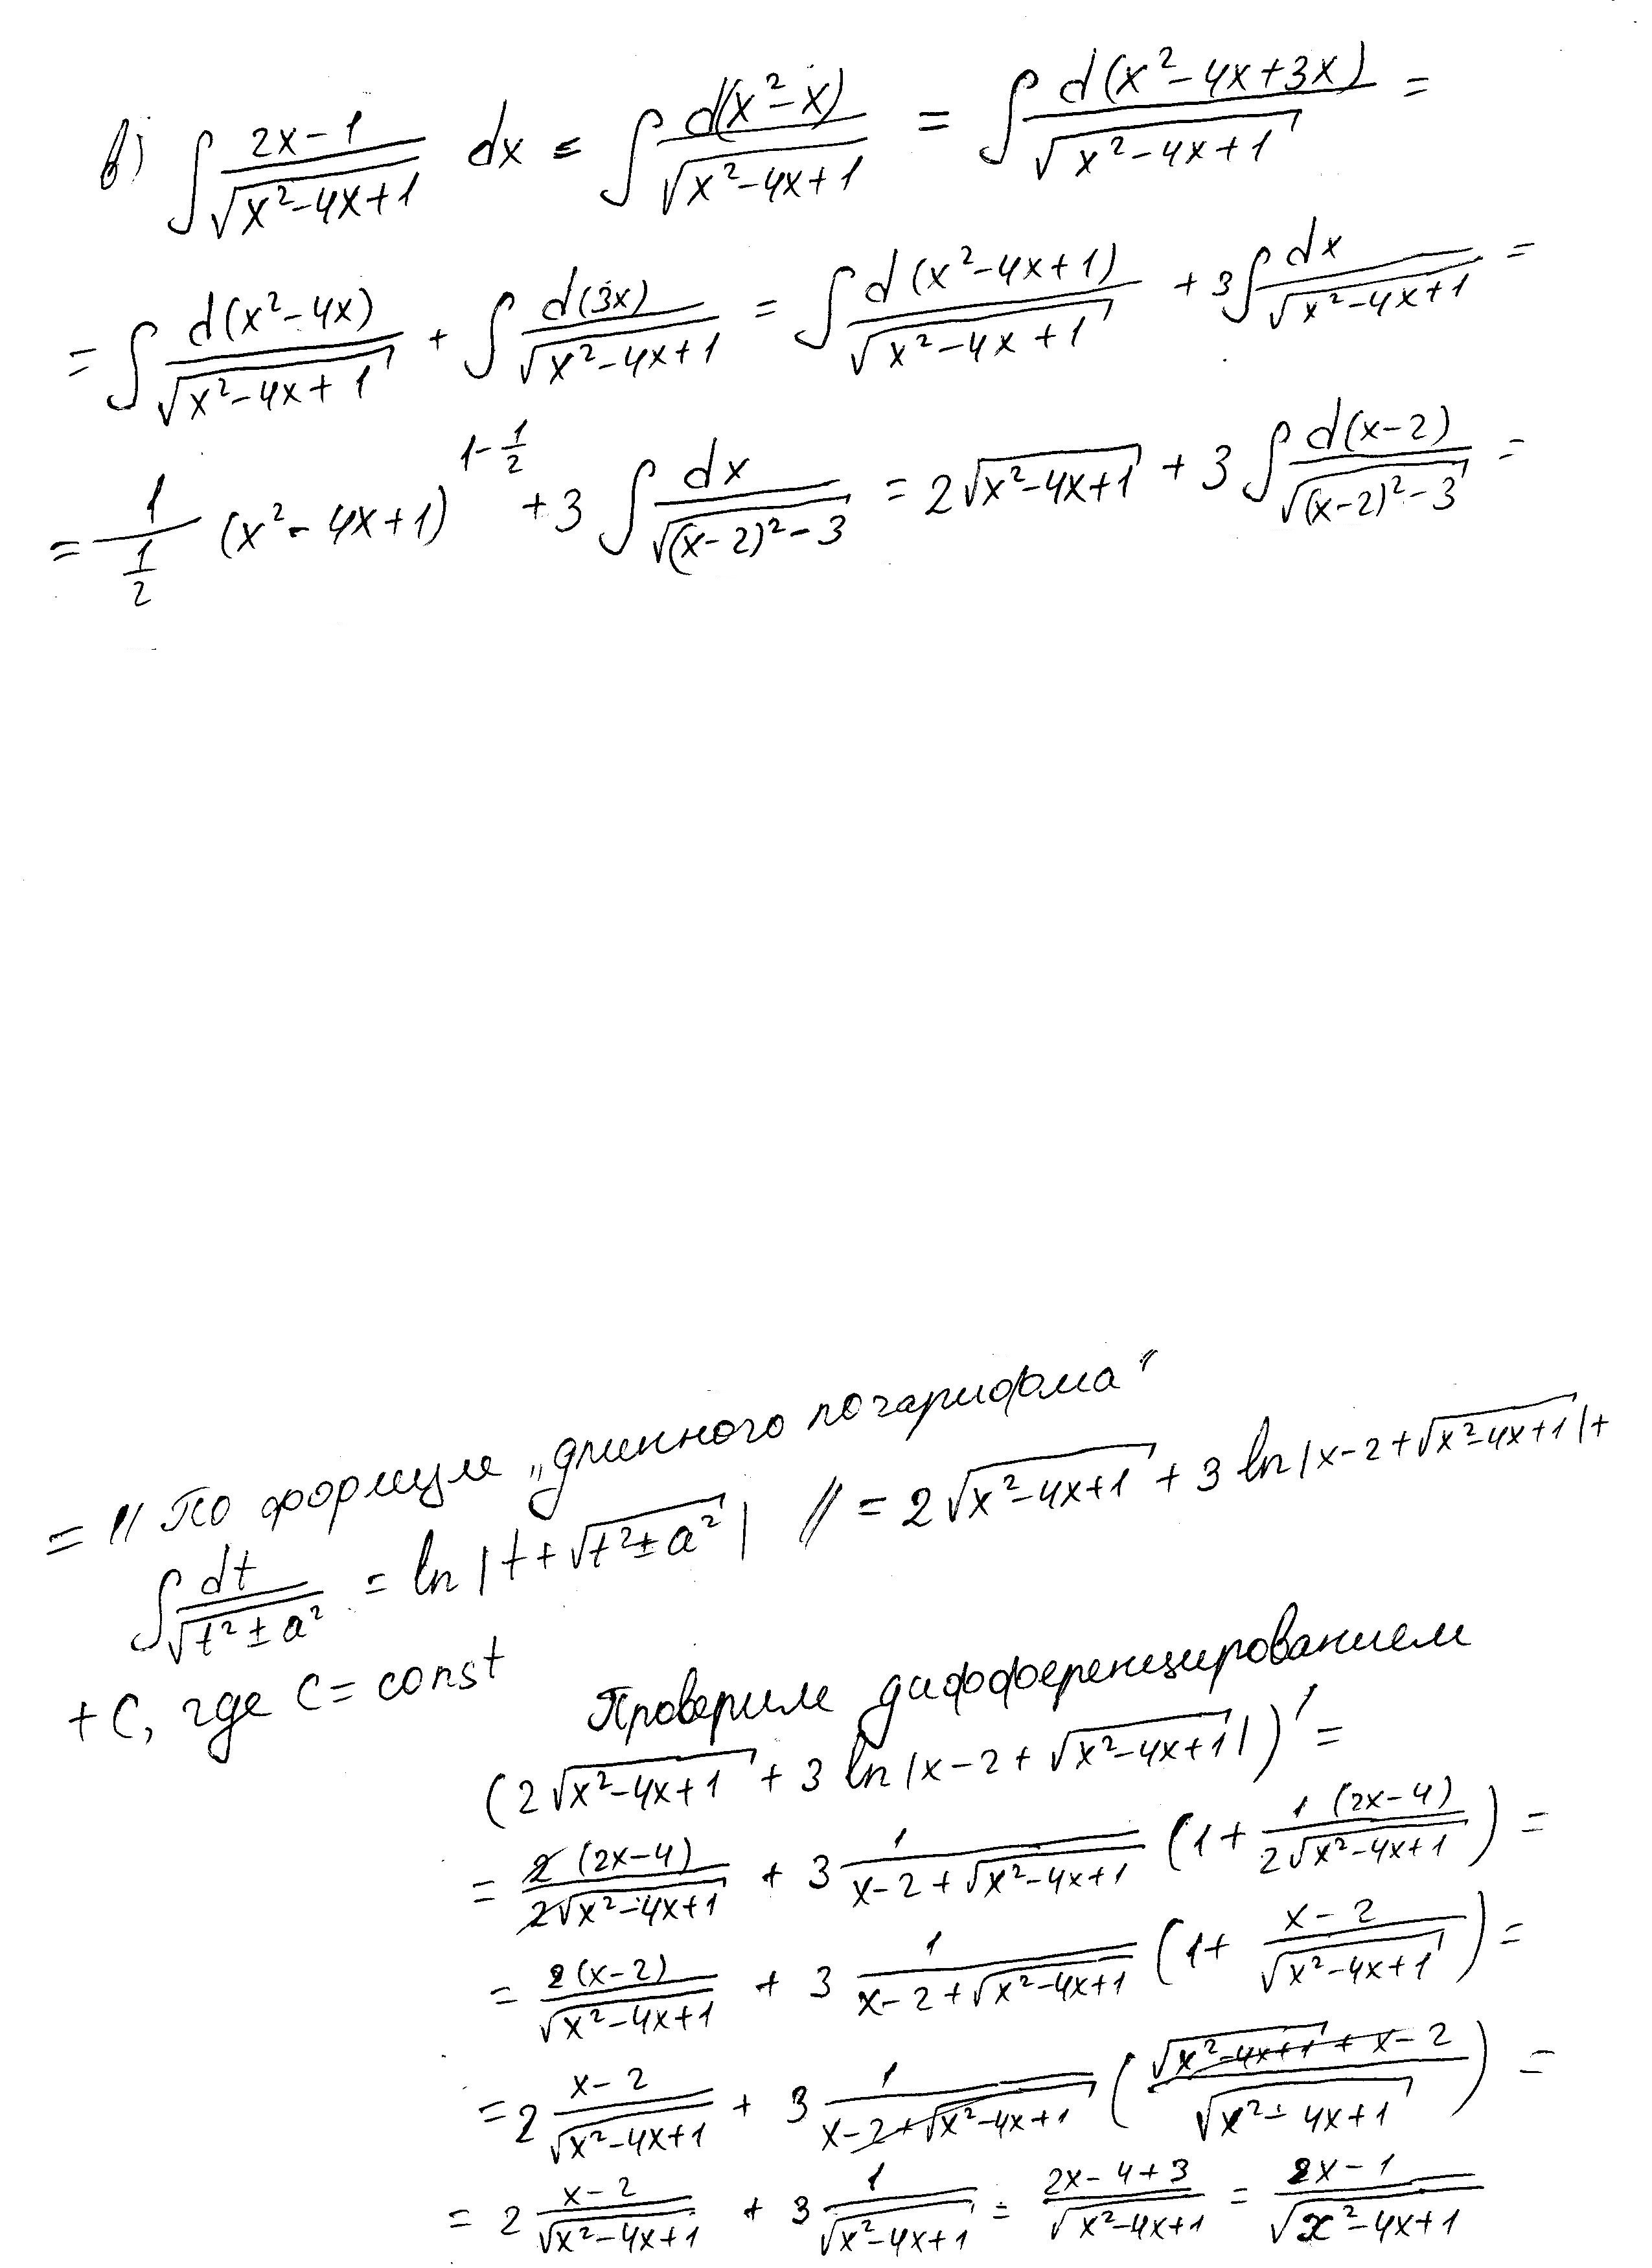 в) ∫ (2x-1)/√(x²-4x+1) dx = ∫ d(x²-x)/√(x²-4x+1) = ∫ d(x²-4x+3x)/√(x²-4x+1) =
= ∫ d(x²-4x)/√(x²-4x+1) + ∫ d(3x)/√(x²-4x+1) = ∫ d(x²-4x+1)/√(x²-4x+1) + 3∫ dx/√(x²-4x+1) =
= 1/(1/2) (x²-4x+1)^(1-1/2) + 3 ∫ dx/√((x-2)²-3) = 2√(x²-4x+1) + 3 ∫ d(x-2)/√((x-2)²-3) =
= // По формуле „длинного логарифма"
∫ dt/√(t²±a²) = ln|t+√(t²±a²)| // = 2√(x²-4x+1) + 3 ln|x-2+√(x²-4x+1)| +
+ C, где C = const
Проверим дифференцированием
(2√(x²-4x+1) + 3 ln|x-2+√(x²-4x+1)|)' =
= 2(2x-4)/(2√(x²-4x+1)) + 3 1/(x-2+√(x²-4x+1)) (1+ 1(2x-4)/(2√(x²-4x+1))) =
= 2(x-2)/√(x²-4x+1) + 3 1/(x-2+√(x²-4x+1)) (1+ (x-2)/√(x²-4x+1)) =
= 2 (x-2)/√(x²-4x+1) + 3 1/(x-2+√(x²-4x+1)) ((√(x²-4x+1)+x-2)/√(x²-4x+1)) =
= 2 (x-2)/√(x²-4x+1) + 3 1/√(x²-4x+1) = (2x-4+3)/√(x²-4x+1) = (2x-1)/√(x²-4x+1)